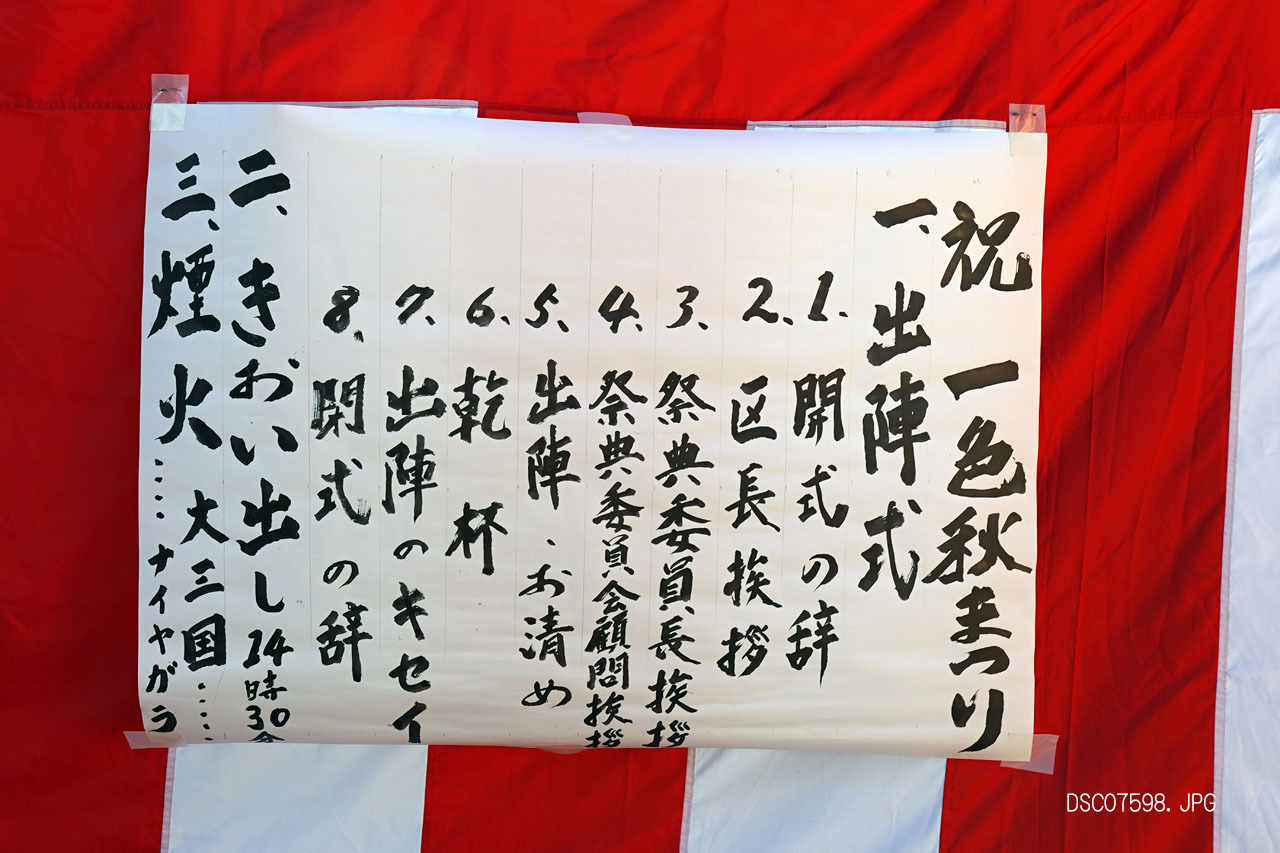 祝 一色秋まつり
一、出陣式
1、開式の辞
2、区長挨拶
3、祭典委員長挨拶
4、祭典委員会顧問挨拶
5、出陣、お清め
6、乾杯
7、出陣のキセイ
8、閉式の辞
二、きおい出し 14時30分
三、煙火 大三国‥‥‥
‥‥‥ナイヤガラ
DSC07598.JPG